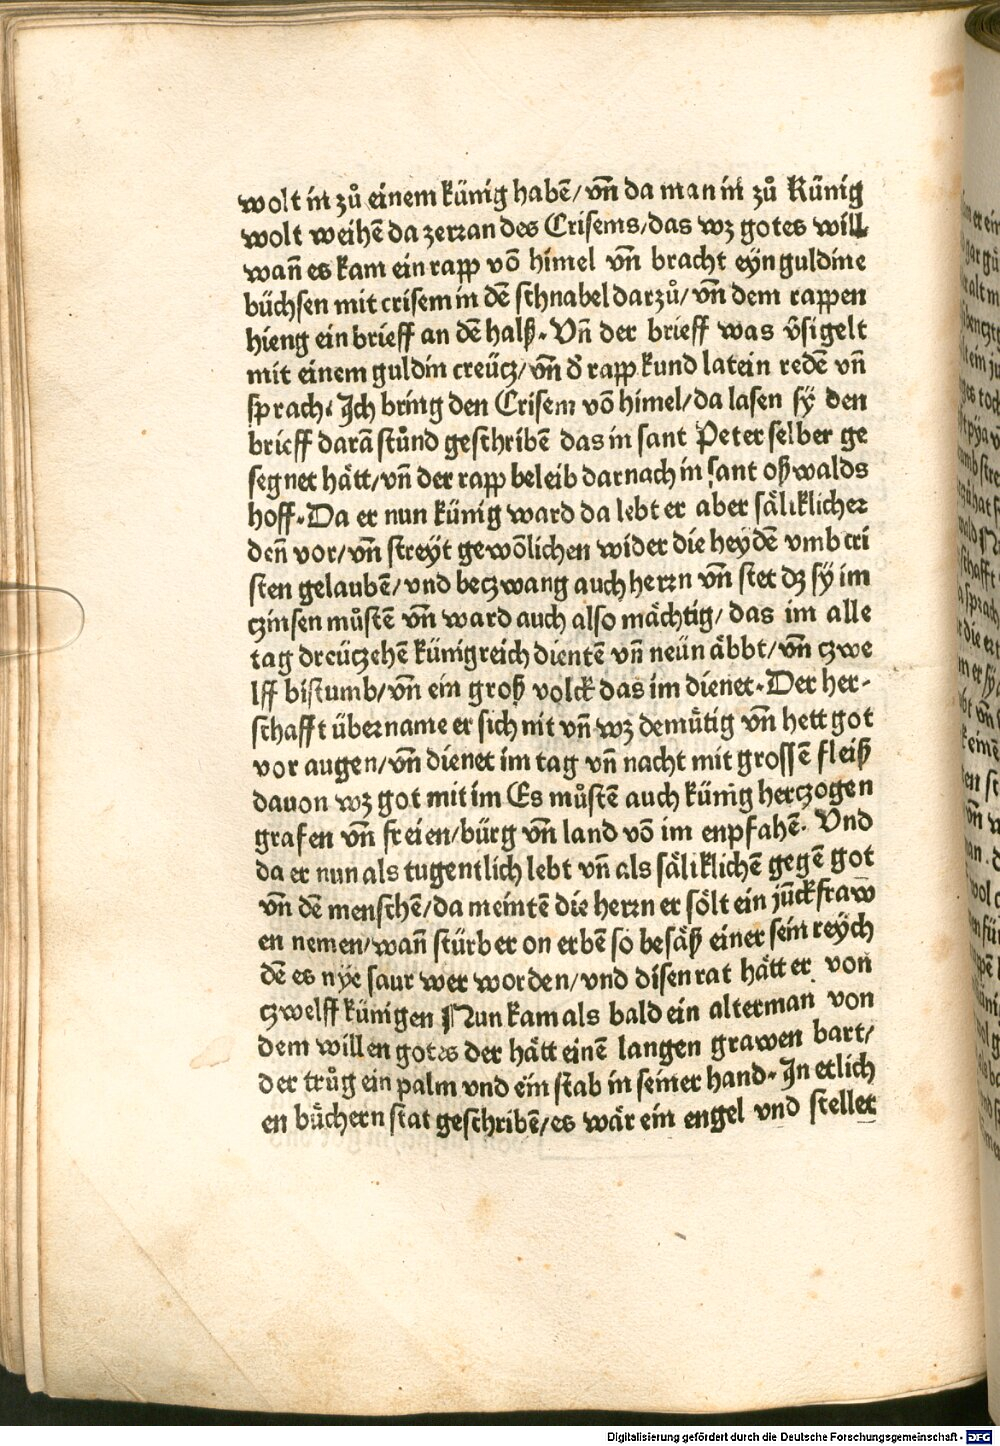 wolt in zů einem künig habē/ vn̄ da man in zů Künig
wolt weihē da zerran des Crisems/ das wz gotes will
wan̄ es kam ein rapp vō himel vn̄ bracht eyn guldine
büchsen mit crisem in dē schnabel darzů/ vn̄ dem rappen
hieng ein brieff an dē halß. Vn̄ der brieff was v̄sigelt
mit einem guldin creücz/ vn̄ d̄ rapp kund latein redē vn̄
sprach. Ich bring den Crisem vō himel/ da lasen sy den
brieff darā stůnd geschribē das in sant Peter selber ge
segnet hätt/ vn̄ der rapp beleib darnach in sant oßwalds
hoff. Da er nun künig ward da lebt er aber säliklicher
den̄ vor/ vn̄ streyt gewōlichen wider die heydē vmb cri
sten gelaubē/ vnd beczwang auch herrn vn̄ stet dz sy im
czinsen můstē vn̄ ward auch also mächtig/ das im alle
tag dreüczehē künigreich dientē vn̄ neün äbbt/ vn̄ czwe
lff bistumb/ vn̄ ein groß volck das im dienet. Der her-
schafft übername er sich nit vn̄ wz demütig vn̄ hett got
vor augen/ vn̄ dienet im tag vn̄ nacht mit grossē fleiß
dauon wz got mit im Es můstē auch künig herczogen
grafen vn̄ freien/ bürg vn̄ land vō im enpfahē. Vnd
da er nun als tugentlich lebt vn̄ als säliklichē gegē got
vn̄ dē menschē/ da meintē die herrn er sölt ein jūckfraw
en nemen/ wan̄ stürb er on erbē so besäß einer sein reych
dē es nye saur wer worden/ vnd disen rat hätt er von
czwelff künigen Nun kam als bald ein alterman von
dem willen gotes der hätt einē langen grawen bart/
der trůg ein palm vnd ein stab in seiner hand. In etlich
en büchern stat geschribē/ es wär ein engel vnd stellet
Digitalisierung gefördert durch die Deutsche Forschungsgemeinschaft - DFG